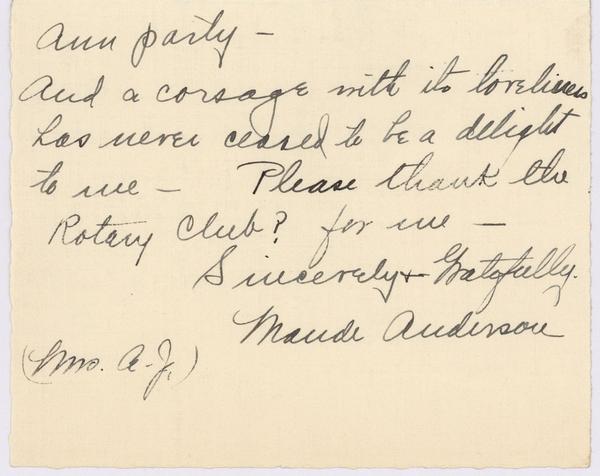 Ann party -
And a corsage with its loveliness
has never ceased to be a delight
to me - Please thank the
Rotary Club? for me -
Sincerely + Gratefully.
Maude Anderson
(Mrs. A-J.)